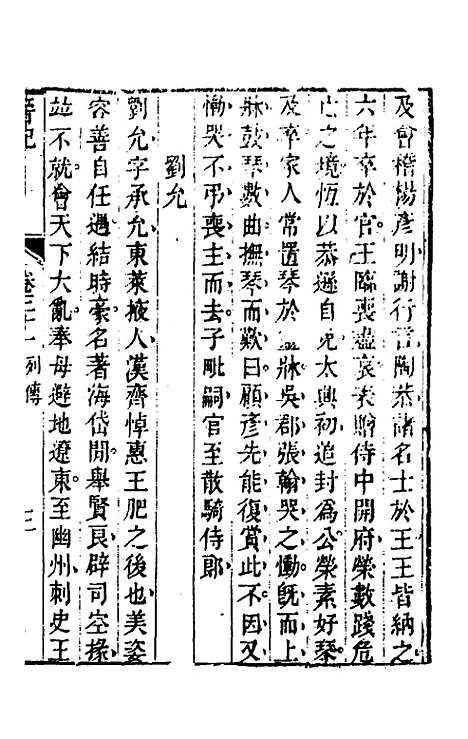 及會稽楊彥明謝行言陶恭諸名士於王王皆納之
六年卒於官王臨喪盡哀表贈侍中開府榮數踐危
亡之境恆以恭遜自免太興初追封為公榮素好琴
及卒家人常置琴於牀吳郡張翰哭之慟旣而上
牀鼓琴數曲撫琴而歎曰顧彥先能復賞此不因又
慟哭不弔喪主而去子毗嗣官至散騎侍郎
劉允
劉允字承允東萊掖人漢齊悼惠王肥之後也美姿
容善自任遇結時豪名著海岱閒舉賢良辟司空掾
竝不就會天下大亂奉母避地遼東至幽州刺史王
晉記
卷三十一列傳
三